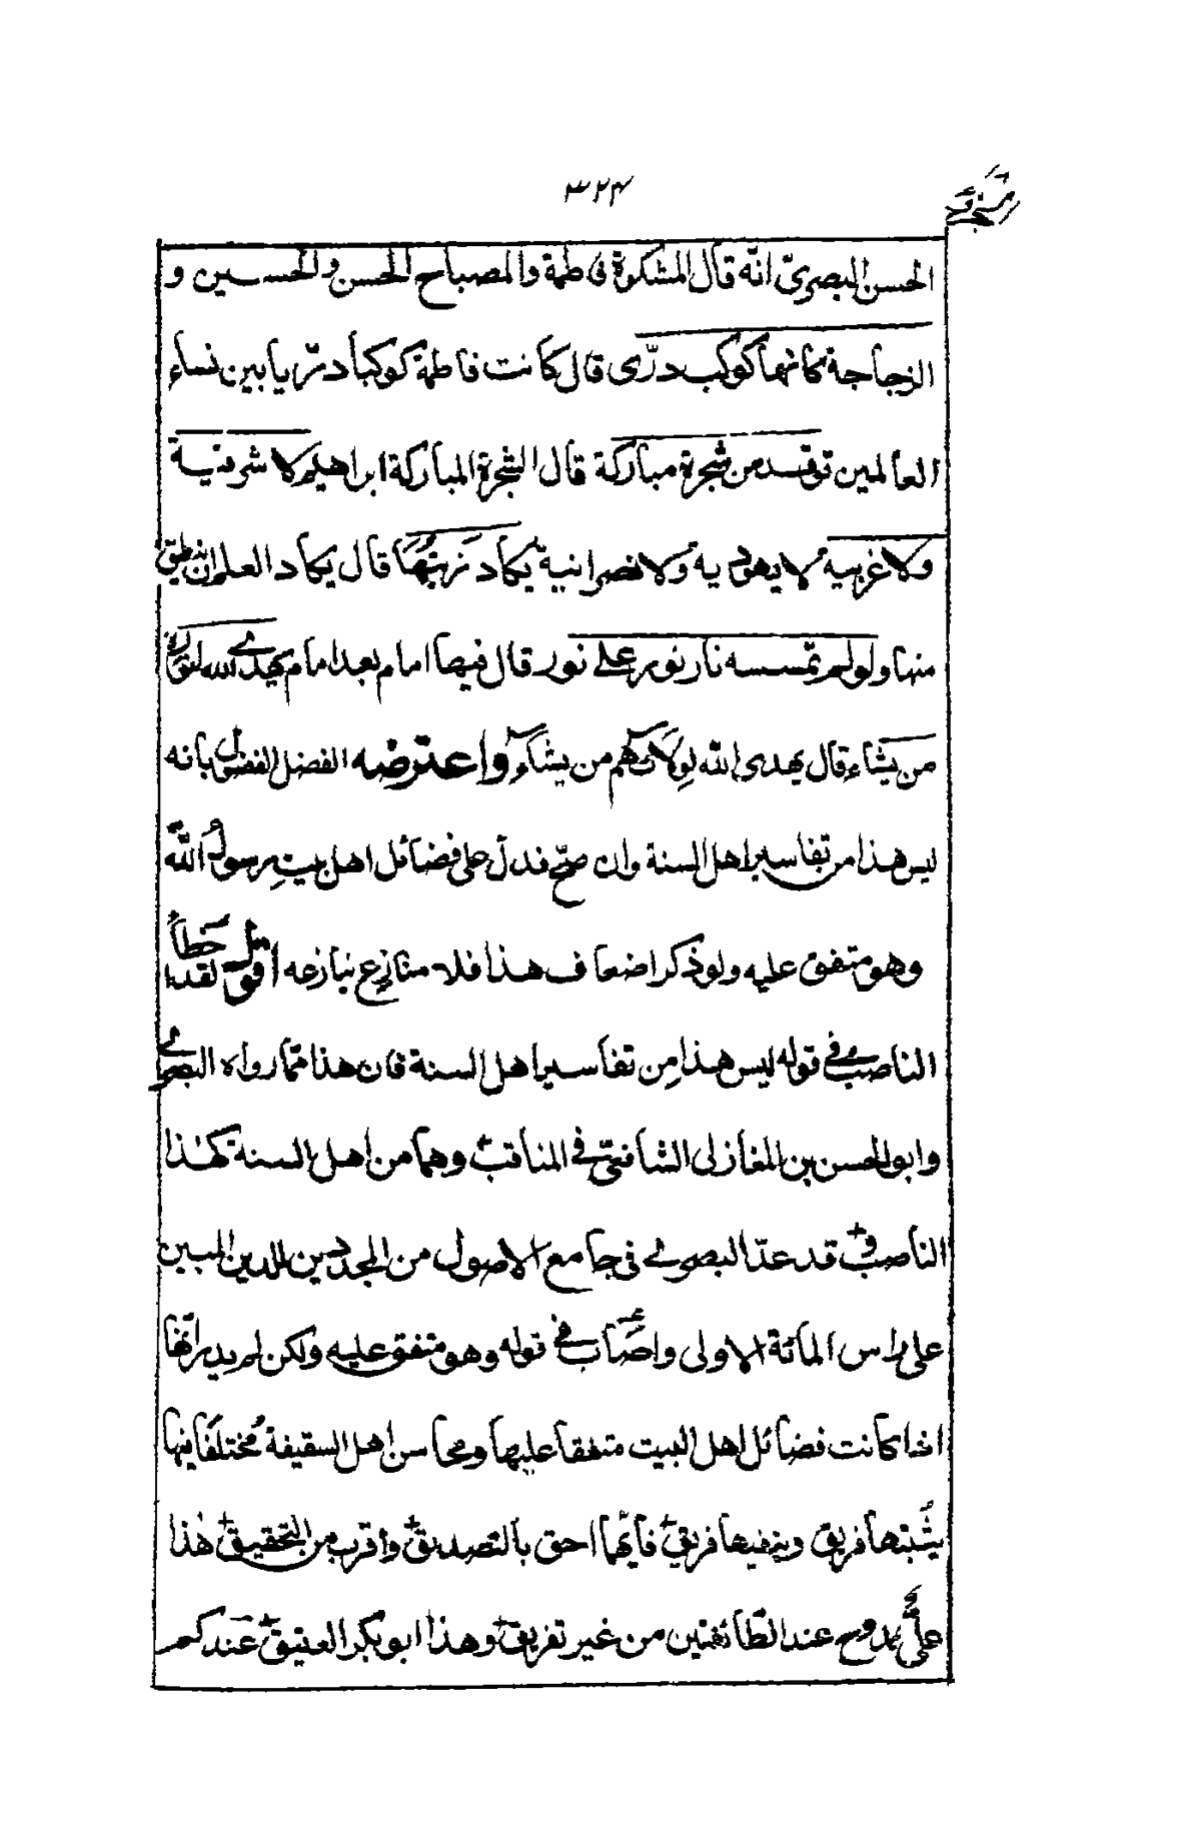 ۳۲۴
الحسن البصري انّه قال المشكوة فاطمة والمصباح الحسن والحسين و
الزجاجة كانها كوكب درّى قال كانت فاطمة كوكبا درّيا بين نساء
العالمين توقد من شجرة مباركة قال الشجرة المباركة ابراهيم لا شرقية
ولا غربية لا يهودية ولا نصرانية يكاد زيتها قال يكاد العلم ان ينطق
منها ولو لم تمسسه نار نور على نور قال فيها امام بعد امام يهدي الله لنوره
من يشاء قال يهدى الله لولايتهم من يشاء واعترضه الفضل الفضول بانه
ليس هذا من تفاسير اهل السنة وان صحّ فدل على فضائل اهل بيت رسول الله
وهو متفق عليه ولو ذكر اضعاف هذا فلا منازع ينازعه اقول لقد خطأ
الناصب في قوله ليس هذا من تفاسير اهل السنة فان هذا ممّا رواه البصري
وابو الحسن بن المغازلى الشافعي في المناقب وهما من اهل السنة كهذا
الناصب وقد عدّ البصري فى جامع الاصول من المجددين للدين المبين
على راس المائة الاولى واصاب في قوله وهو متفق عليه ولكن لم يدر انّها
اذا كانت فضائل اهل البيت متفقا عليها ومحاسن اهل السقيفة مختلفا فيها
يثبتها فريق وينفيها فريق فأيهما احق بالتصديق واقرب من التحقيق هذا
علىّ ممدوح عند الطّائفتين من غير تفريق وهذا ابو بكر العتيق عندكم